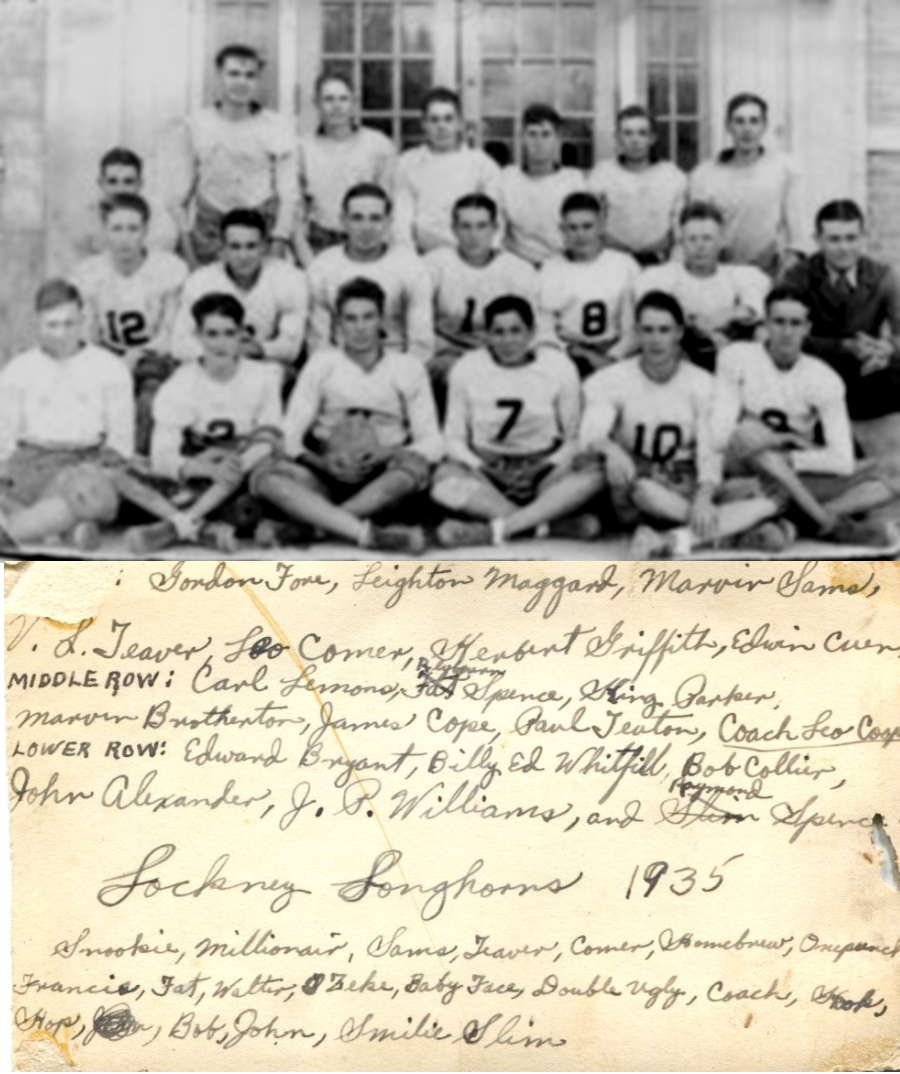 12
1
8
7
10
: Gordon Fore, Leighton Maggard, Marvin Sams,
V. L. Teaver, Leo Comer, Herbert Griffith, Edwin Cuen
MIDDLE ROW: Carl Lemons, Fat Spence, King Parker,
Marvin Brotherton, James Cope, Paul Teuton, Coach Leo Coop
LOWER ROW: Edward Bryant, Billy Ed Whitfill, Bob Collier,
Raymond
John Alexander, J. P. Williams, and Slim Spence
Lockney Longhorns 1935
Snookie, Millionair, Sams, Teaver, Comer, Homebrew, Onepunch
Francis, Fat, Walter, Zeke, Baby Face, Double Ugly, Coach,
Hop, Bob, John, Smilie Slim